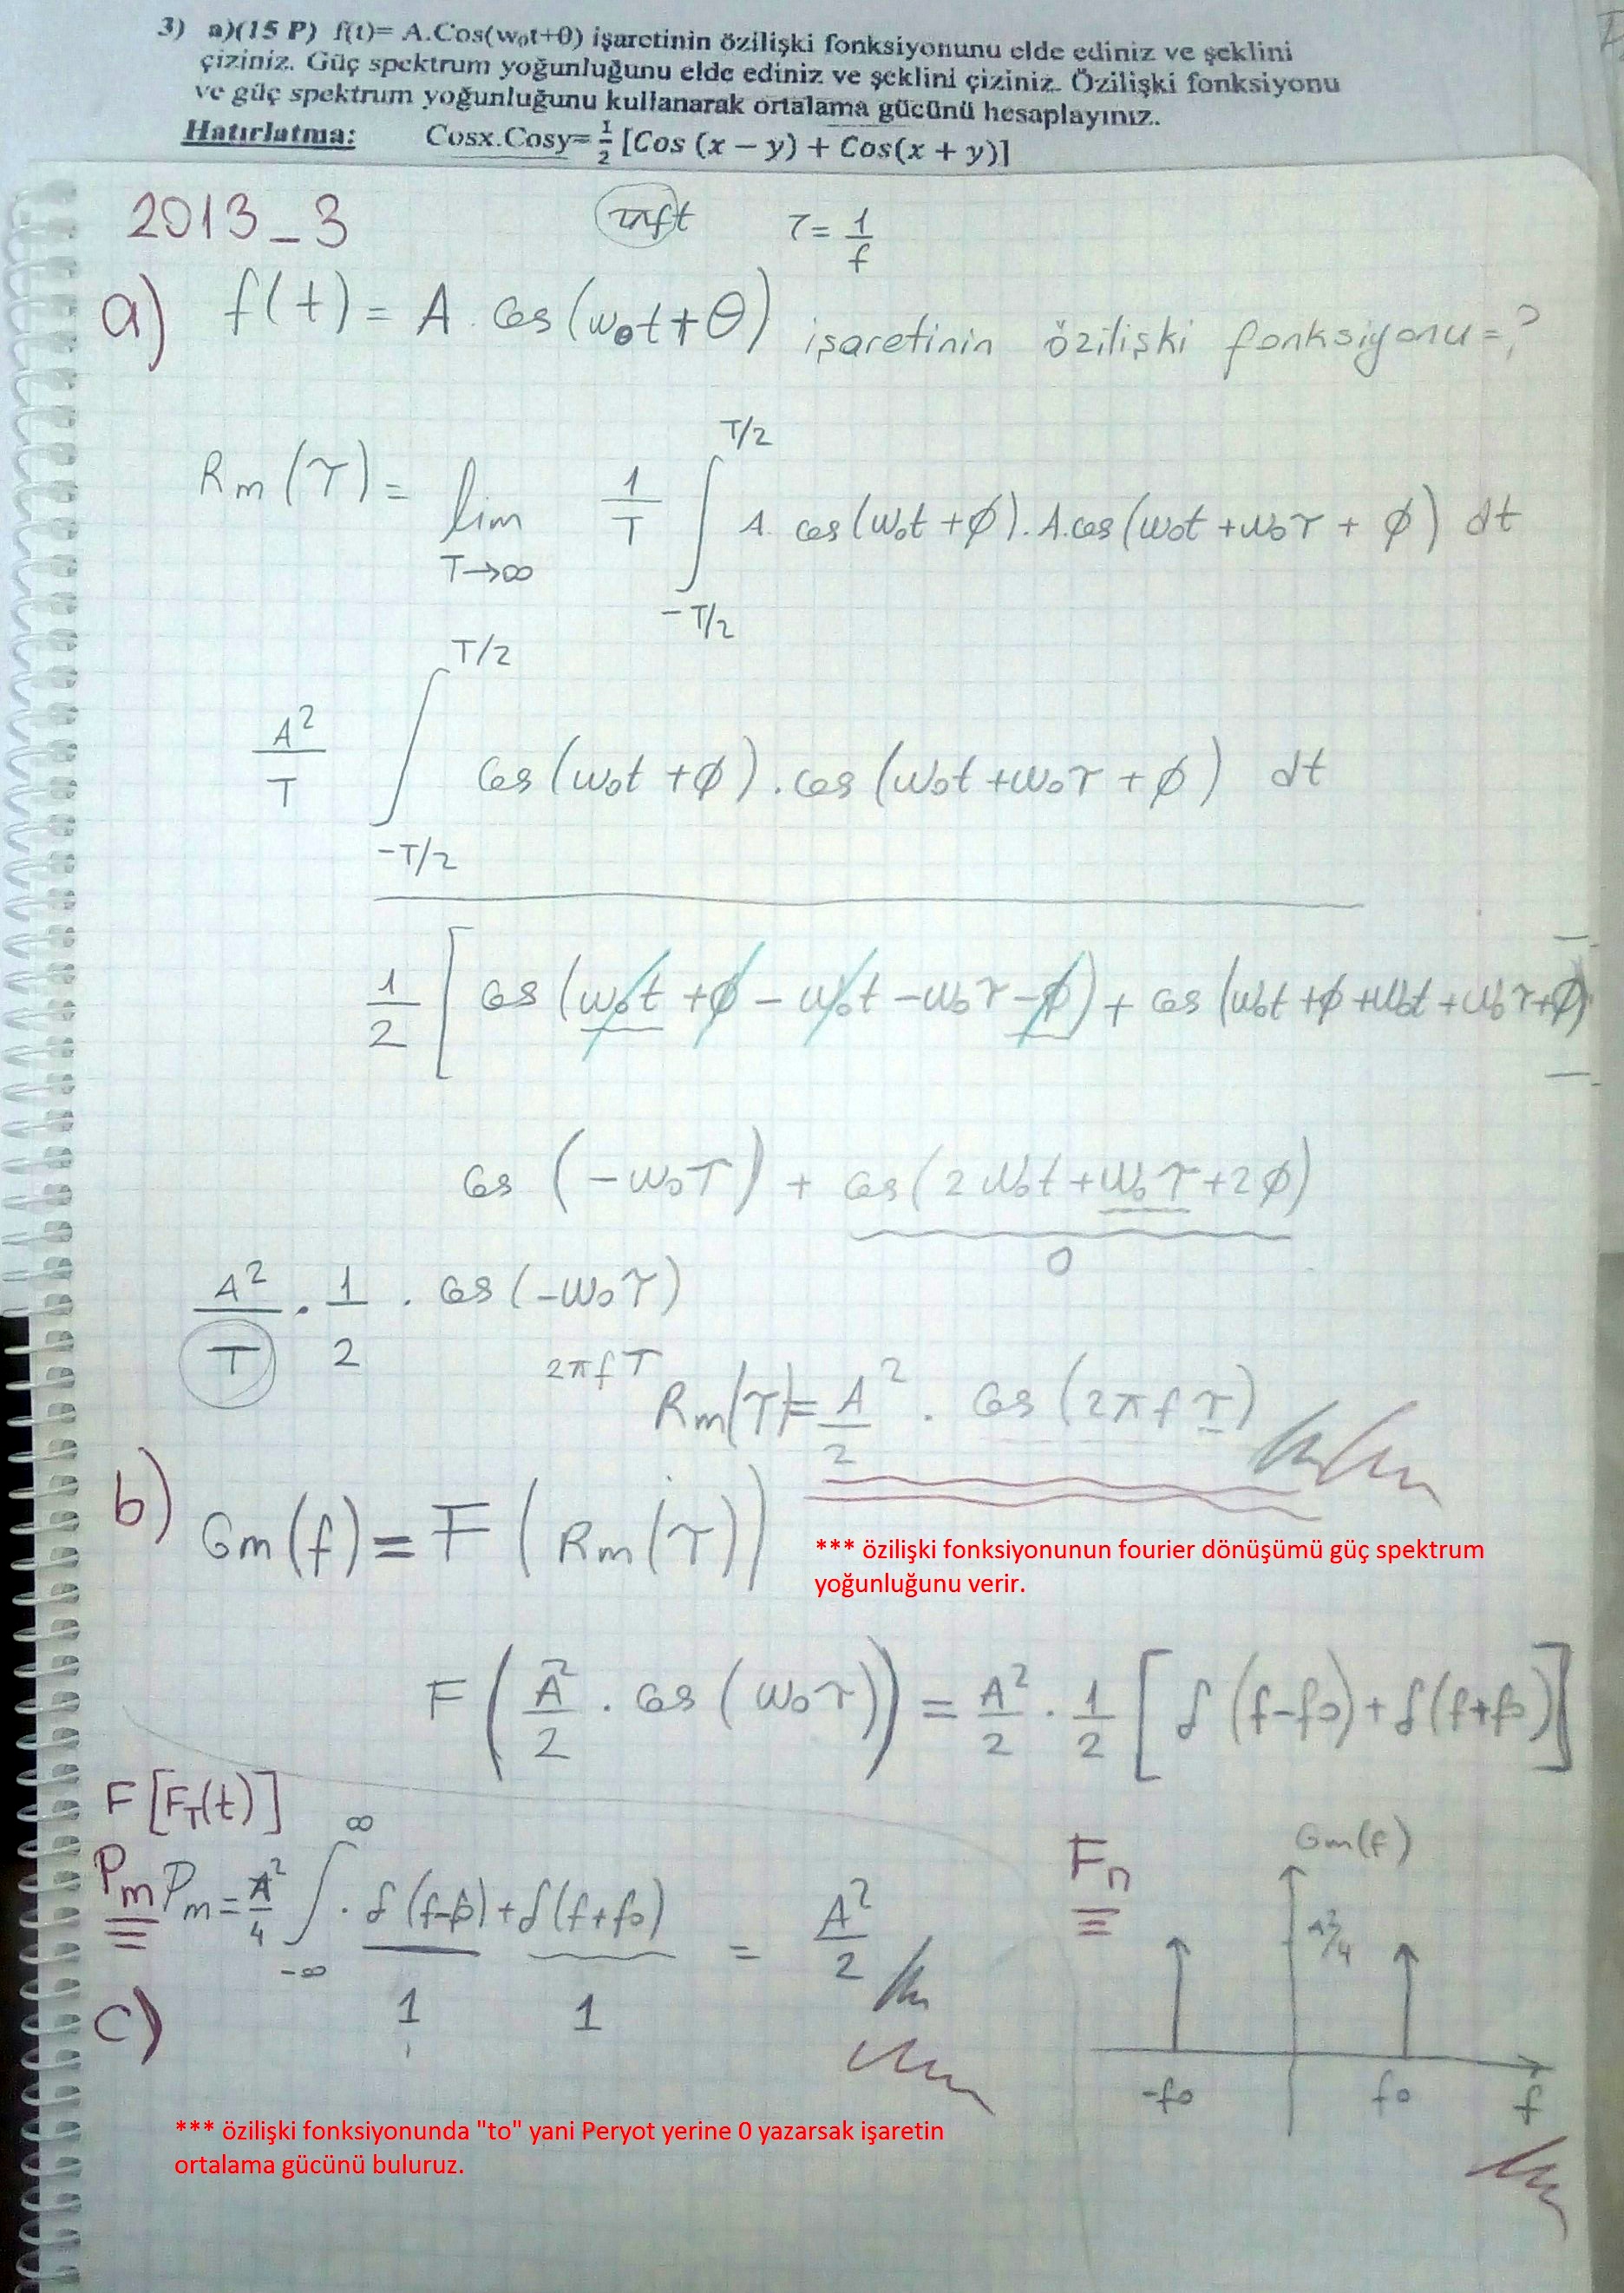 3) a)(15 P) f(t)= A.Cos(w₀t+θ) işaretinin özilişki fonksiyonunu elde ediniz ve şeklini
çiziniz. Güç spektrum yoğunluğunu elde ediniz ve şeklini çiziniz. Özilişki fonksiyonu
ve güç spektrum yoğunluğunu kullanarak ortalama gücünü hesaplayınız.
Hatırlatma: Cosx.Cosy= 1/2 [Cos (x − y) + Cos(x + y)]
2013_3 2πft τ = 1/f
a) f(t) = A . Cos(w₀t + θ) işaretinin özilişki fonksiyonu = ?
Rm(τ) = lim T→∞ 1/T ∫ -T/2 T/2 A. cos(w₀t + ϕ). A.cos(w₀t + w₀τ + ϕ) dt
A²/T ∫ -T/2 T/2 Cos(w₀t + ϕ) . cos(w₀t + w₀τ + ϕ) dt
1/2 [ cos (w₀t + ϕ − w₀t − w₀τ − ϕ) + cos (w₀t + ϕ + w₀t + w₀τ + ϕ) ]
cos (−w₀τ) + cos(2w₀t + w₀τ + 2ϕ)
0
A²/T . 1/2 . cos(−w₀τ)
2πfτ
Rm(τ) = A²/2 . Cos (2πfτ)
b) Gm(f) = F (Rm(τ))
*** özilişki fonksiyonunun fourier dönüşümü güç spektrum
yoğunluğunu verir.
F ( A²/2 . cos (w₀τ)) = A²/2 . 1/2 [ δ (f−f₀) + δ(f+f₀) ]
F [F_T(t)]
Pm Pm = A²/4 ∫ -∞ ∞ . δ (f−f₀) + δ(f+f₀) = A²/2
1 1
c)
Fn
Gm(f)
A²/4
-f₀ f₀ f
*** özilişki fonksiyonunda "to" yani Peryot yerine 0 yazarsak işaretin
ortalama gücünü buluruz.